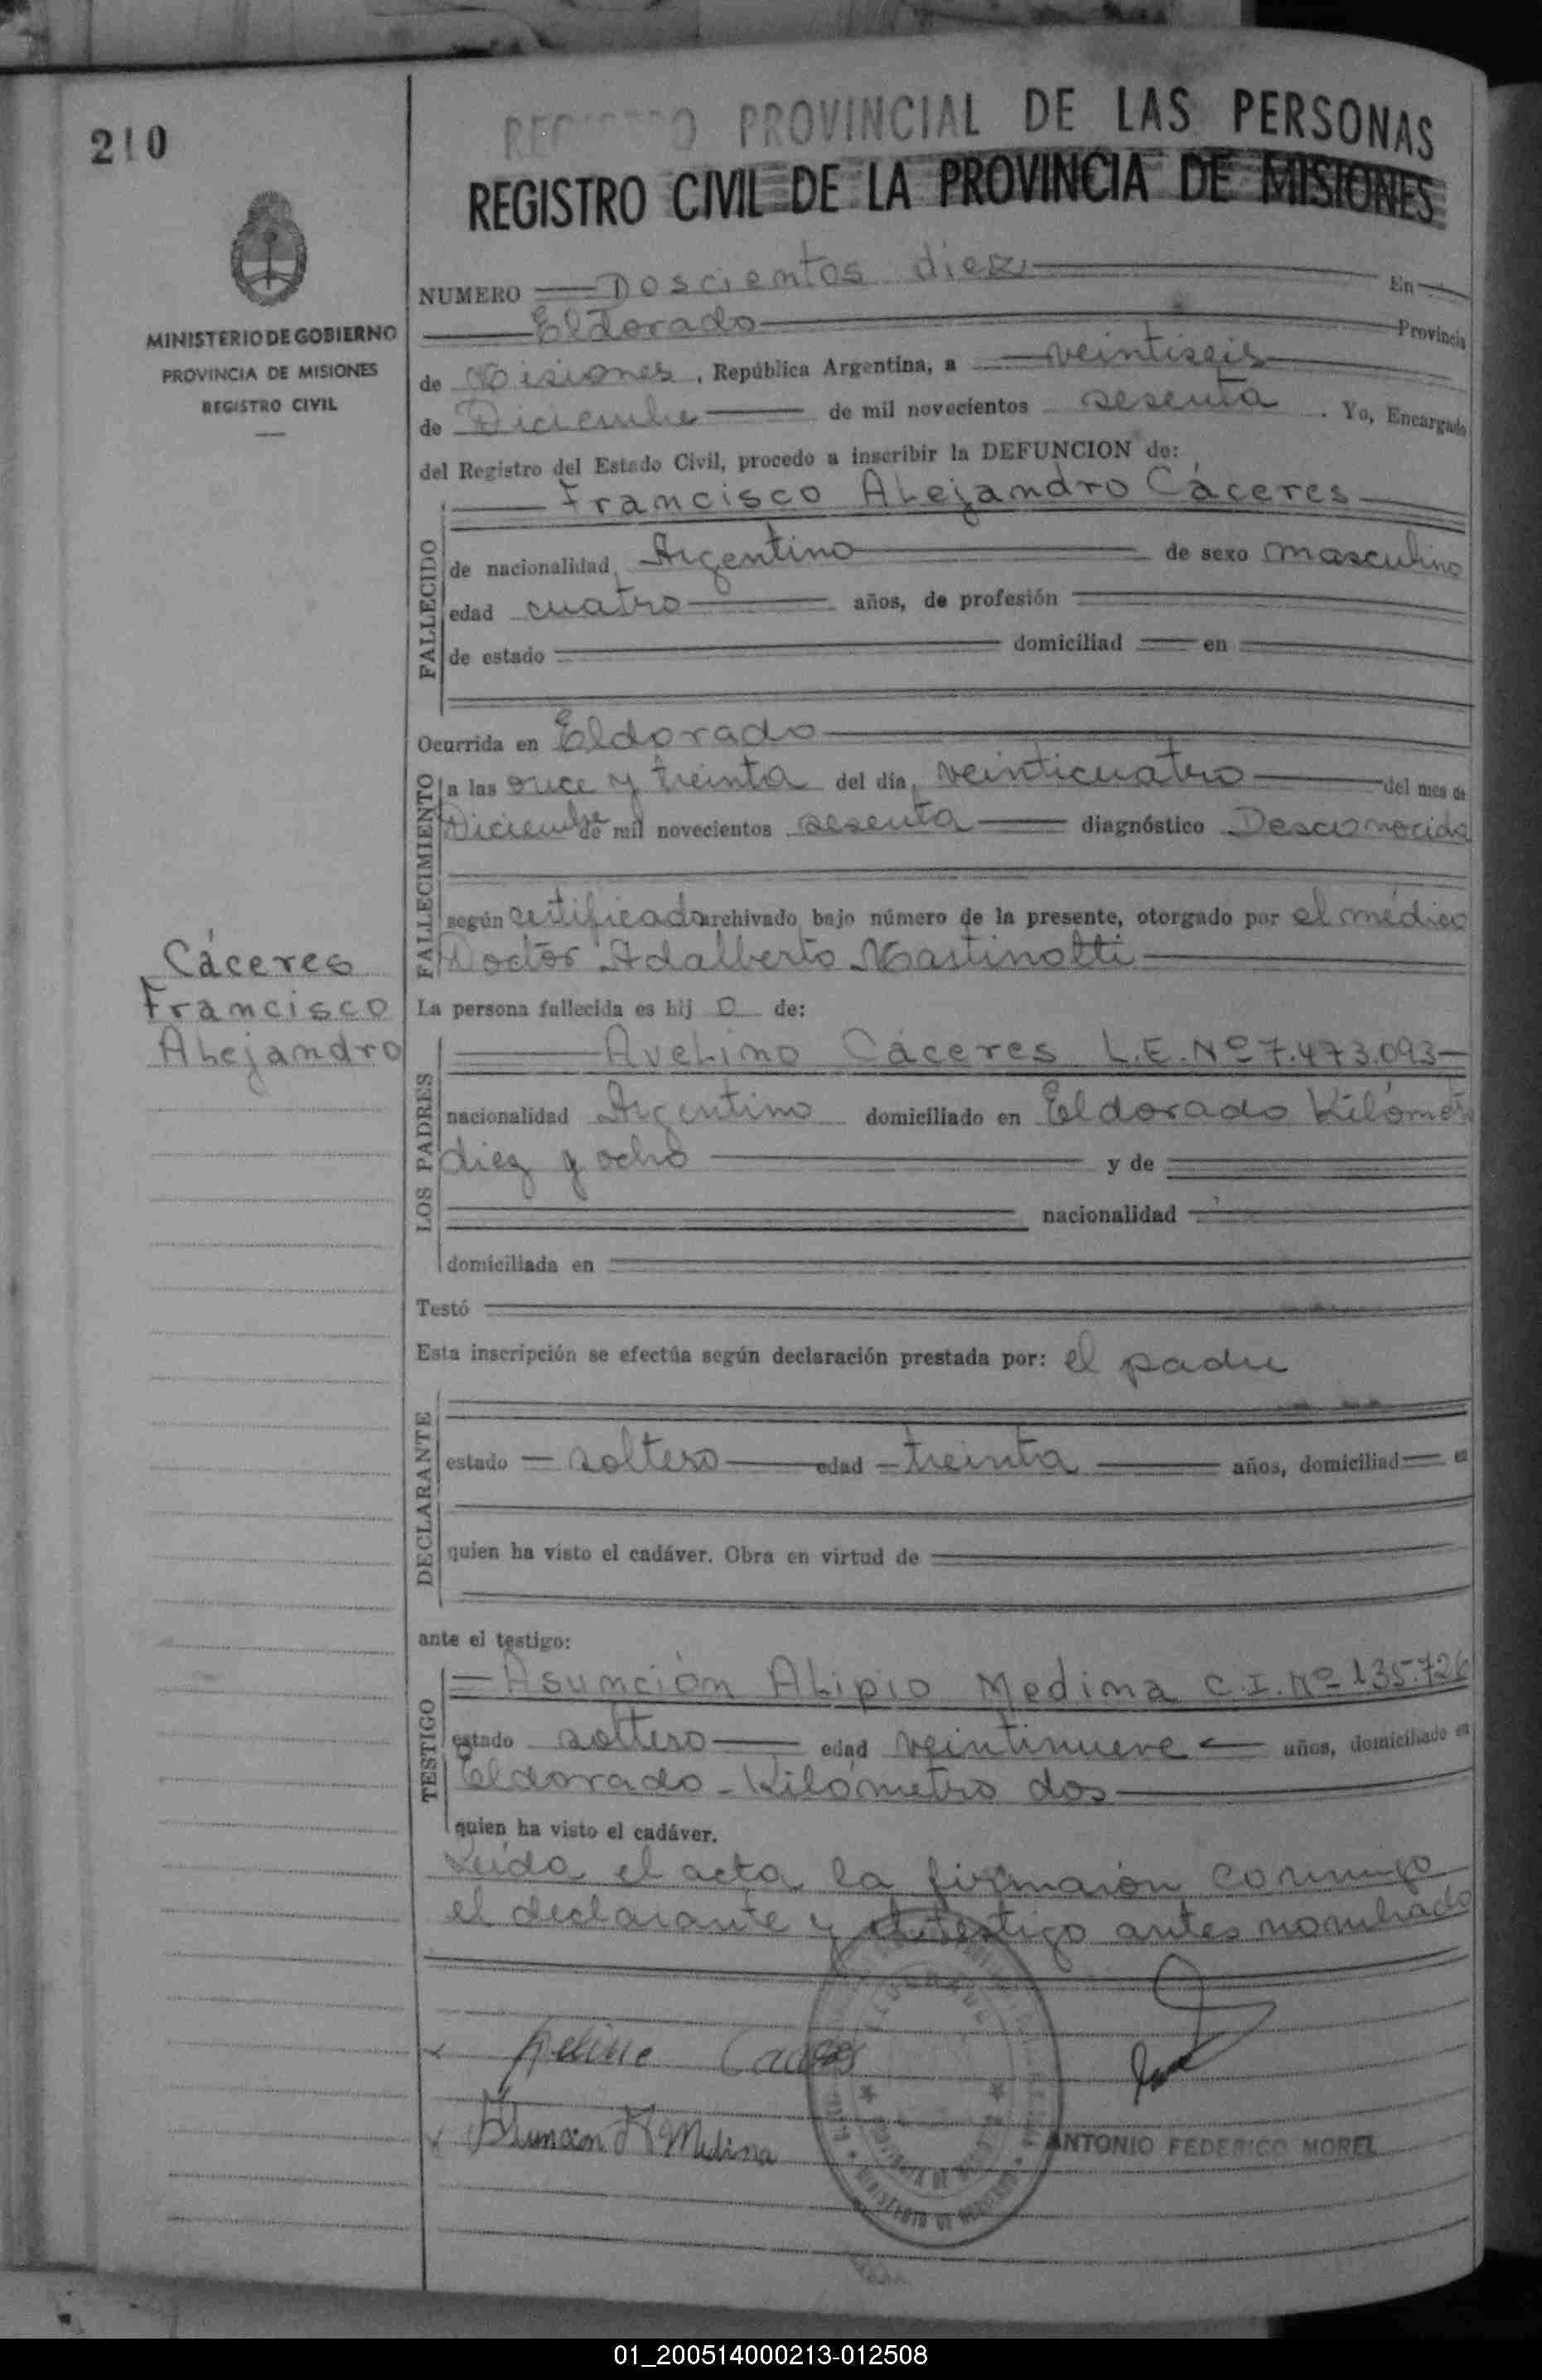 210
REGISTRO PROVINCIAL DE LAS PERSONAS
REGISTRO CIVIL DE LA PROVINCIA DE MISIONES
MINISTERIO DE GOBIERNO
PROVINCIA DE MISIONES
REGISTRO CIVIL
NUMERO Doscientos diez En
Eldorado Provincia
de Misiones, República Argentina, a veintiseis
de Diciembre de mil novecientos sesenta. Yo, Encargado
del Registro del Estado Civil, procedo a inscribir la DEFUNCION de:
Francisco Alejandro Cáceres
FALLECIDO
de nacionalidad Argentino de sexo masculino
edad cuatro años, de profesión
de estado domiciliad en
Ocurrida en Eldorado
FALLECIMIENTO
a las once y treinta del día veinticuatro del mes de
Diciembre de mil novecientos sesenta diagnóstico Desconocida
según certificado archivado bajo número de la presente, otorgado por el médico
Doctor Adalberto Mastinotti
Cáceres
Francisco
Alejandro
La persona fallecida es hij o de:
LOS PADRES
Avelino Cáceres L.E. Nº 7.473.093
nacionalidad Argentino domiciliado en Eldorado Kilómetro
diez y ocho y de
nacionalidad
domiciliada en
Testó
Esta inscripción se efectúa según declaración prestada por: el padre
DECLARANTE
estado soltero edad treinta años, domiciliad en
quien ha visto el cadáver. Obra en virtud de
ante el testigo:
TESTIGO
Asunción Alipio Medina C.I. Nº 135.726
estado soltero edad veintinueve años, domiciliado en
Eldorado - Kilómetro dos
quien ha visto el cadáver.
Leída el acta la firmaron conmigo
el declarante y el testigo antes nombrado
Medina
ANTONIO FEDERICO MOREL
01_200514000213-012508